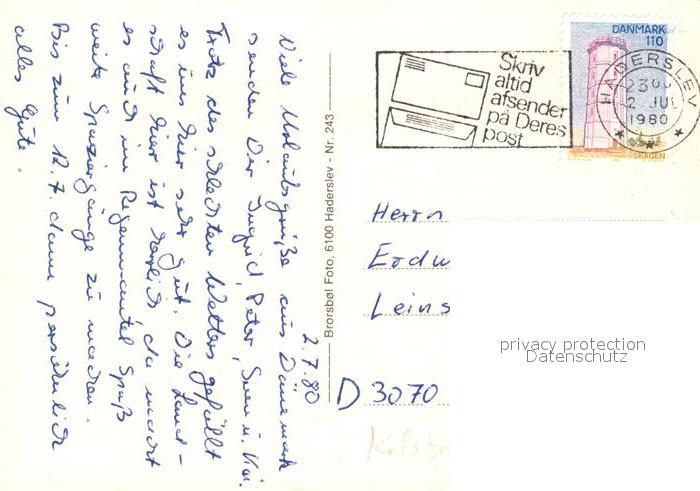 2.7.80
Viele Urlaubsgrüße aus Dänemark
senden Dir Ingrid, Peter, Sven u. Kai.
Trotz des schlechten Wetters gefällt
es uns hier sehr gut. Die Land-
schaft hier ist herrlich, da macht
es auch im Regenmantel Spaß
weite Spaziergänge zu machen.
Bis zum 12.7. dann persönlich
alles Gute.
Brorsbøl Foto, 6100 Haderslev - Nr. 243
Skriv
altid
afsender
på Deres
post
HADERSLEV
2 JUL
1980
DANMARK
110
SKAGEN
Herrn
Erdw
Leins
D 3070
privacy protection
Datenschutz